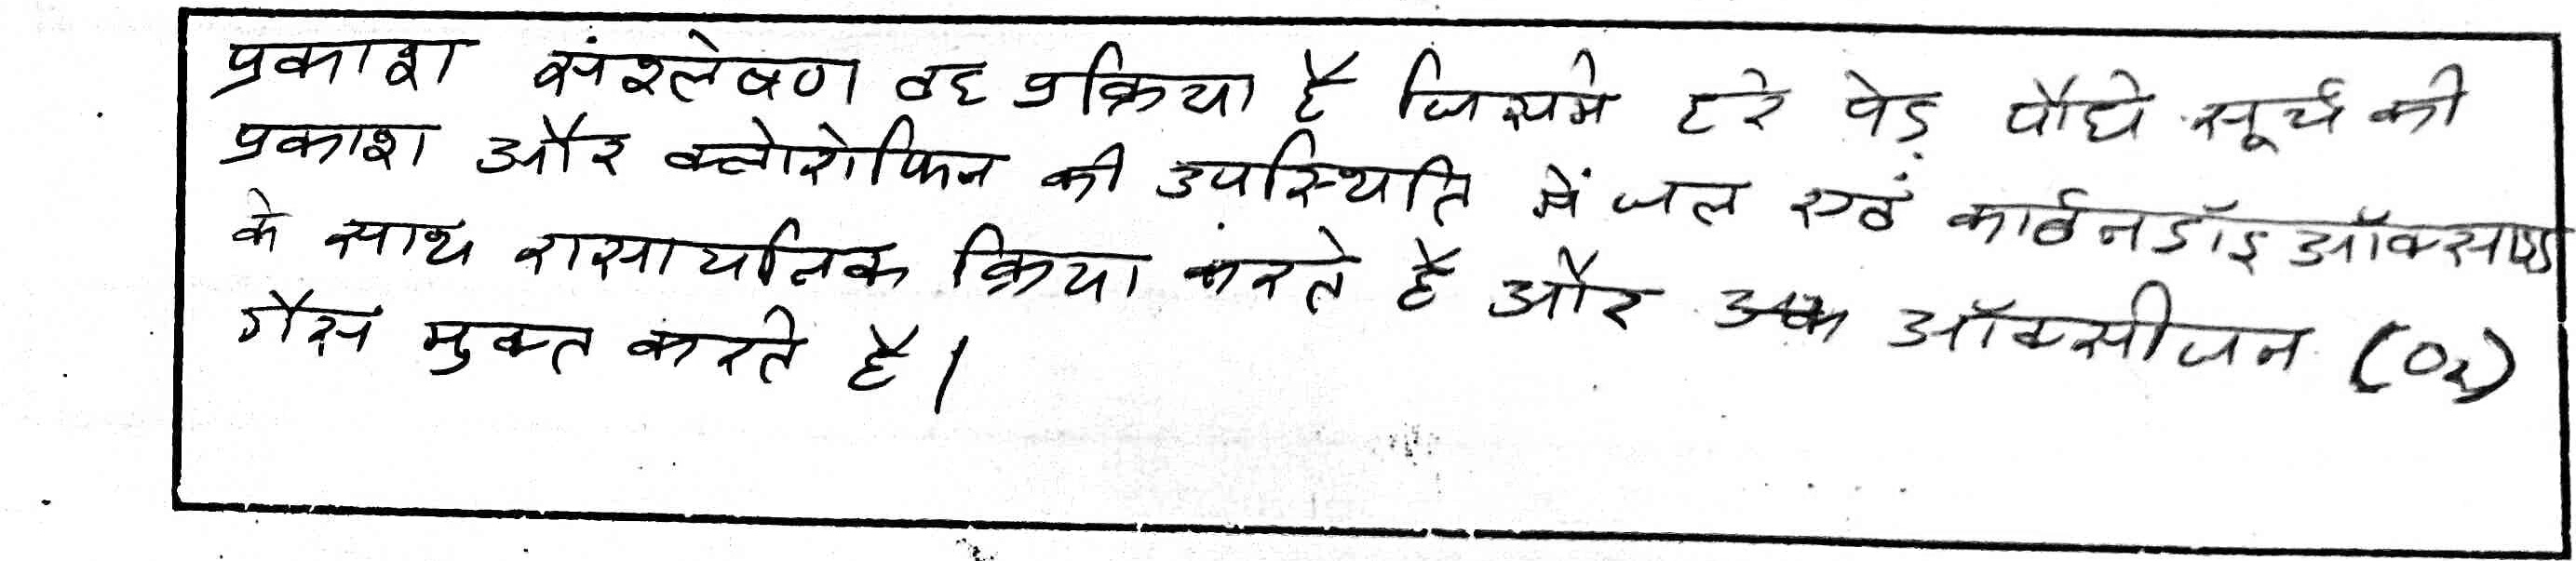 प्रकाश संश्लेषण वह प्रक्रिया है जिसमे हरे पेड़ पौधे सूर्य की
प्रकाश और क्लोरोफिल की उपस्थिति में जल एवं कार्बनडॉइऑक्साइड
के साथ रासायनिक क्रिया करते है और ऑक्सीजन (O₂)
गैस मुक्त करते है।